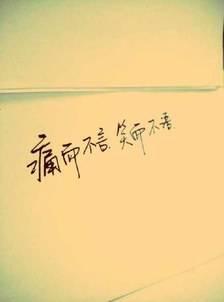 痛而不言.笑而不语.